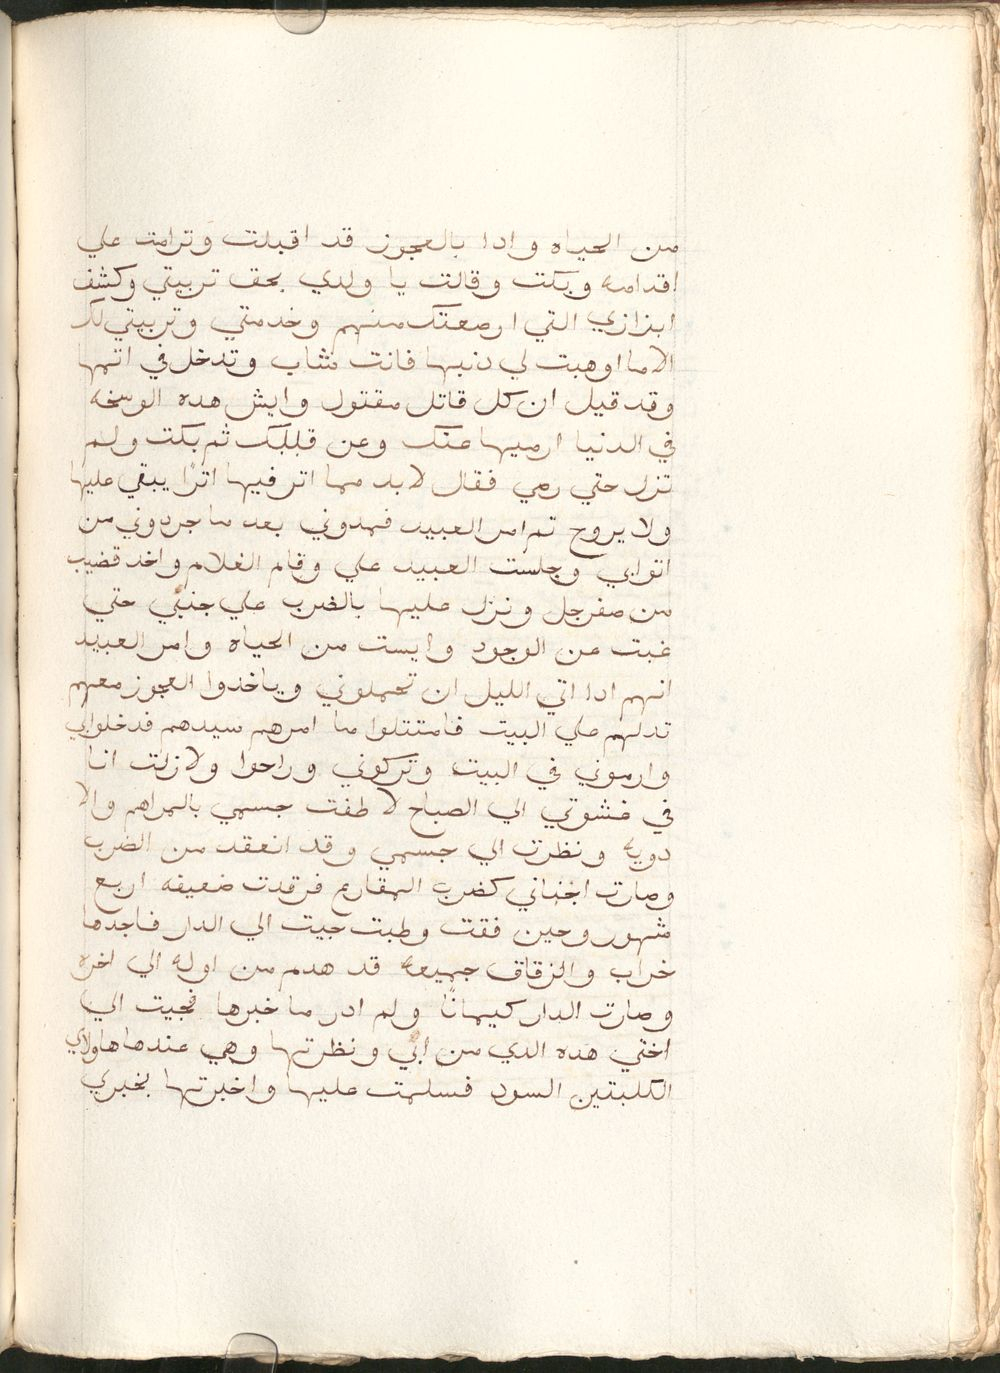 من الحياه وادا بالعجوز قد اقبلت وترامت علي
اقدامه وبكت وقالت يا ولدي بحق تربيتي وكشف
ابزازي التي ارضعتك منهم وخدمتي وتربيتي لك
الاما اوهبت لي دنبها فانت شاب وتدخل في اتمها
وقد قيل ان كل قاتل مقتول وايش هده الوسخه
في الدنيا ارميها عنك وعن قلبك ثم بكت ولم
تزل حتي رمي فقال لابد مما اتر فيها اترًا يبقي عليها
ولا يروح تم امر العبيد فمدوني بعد ما جردوني من
اتوابي وجلست العبيد علي وقام الغلام واخد قضيب
من صفرجل ونزل عليها بالضرب علي جنبي حتي
غبت عن الوجود وايست من الحياه وامر العبيد
انهم ادا اتي الليل ان تحملوني وياخدوا العجوز معهم
تدلهم علي البيت فامتتلوا ما امرهم سيدهم فدخلوا بي
وارموني في البيت وتركوني وراحوا ولازلت انا
في غشوتي الي الصباح لا طفت جسمي بالمراهم والا
دويه ونظرت الي جسمي وقد انعقد من الضرب
وصارت اجناني كضرب المقارع فرقدت ضعيفه اربع
شهور وحين فقت وطبت جيت الي الدار فاجدها
خراب والزقاق جميعه قد هدم من اوله الي اخره
وصارت الدار كيمانًا ولم ادر ما خبرها فجيت الي
اختي هده الدي من ابي ونظرتها وهي عندها هاولاي
الكلبتين السود فسلمت عليها واخبرتها بخبري